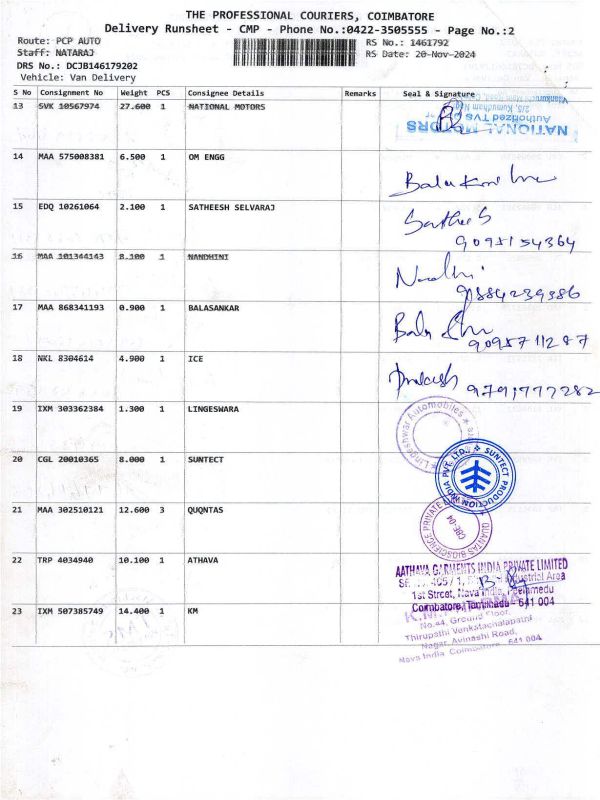 THE PROFESSIONAL COURIERS, COIMBATORE
Delivery Runsheet - CMP - Phone No.:0422-3505555 - Page No.:2
Route: PCP AUTO RS No.: 1461792
Staff: NATARAJ RS Date: 20-Nov-2024
DRS No.: DCJB146179202
Vehicle: Van Delivery
S No Consignment No Weight PCS Consignee Details Remarks Seal & Signature
13 SVK 10567974 27.600 1 NATIONAL MOTORS
NATIONAL MOTORS
Authorized TVS
2/5, Kumudham
14 MAA 575008381 6.500 1 OM ENGG
15 EDQ 10261064 2.100 1 SATHEESH SELVARAJ
Sathees
9095154364
16 MAA 101344143 8.100 1 NANDHINI
9884239386
17 MAA 868341193 0.900 1 BALASANKAR
9095711287
18 NKL 8304614 4.900 1 ICE
Prakash 9791777282
19 IXM 303362384 1.300 1 LINGESWARA
Lingeshwar Automobiles
20 CGL 20010365 8.000 1 SUNTECT
SUNTECT PRODUCTION INDIA PVT. LTD.
21 MAA 302510121 12.600 3 QUQNTAS
QUANTAS BIOSCIENCE PRIVATE
CBE-04
22 TRP 4034940 10.100 1 ATHAVA
AATHAVA GARMENTS INDIA PRIVATE LIMITED
405 / 1, Industrial Area
1st Street, Nava India, Peelamedu
Coimbatore, Tamilnadu - 641 004
23 IXM 507385749 14.400 1 KM
No.44, Ground Floor,
Thirupathi Venkatachalapathi
Nagar, Avinashi Road,
Nava India, Coimbatore - 641 004